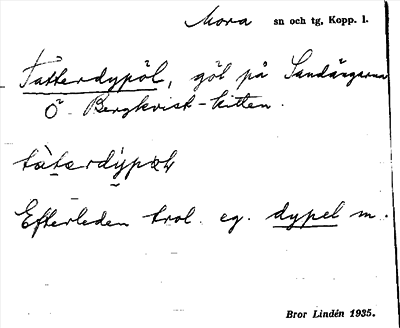 Mora sn och tg, Kopp. l.
Tatterdypöl, göl på Sandängarna
Ö Bergkvist-kitten.
tàtərdýpəl
Efterleden trol. eg. dypel m.
Bror Lindén 1935.